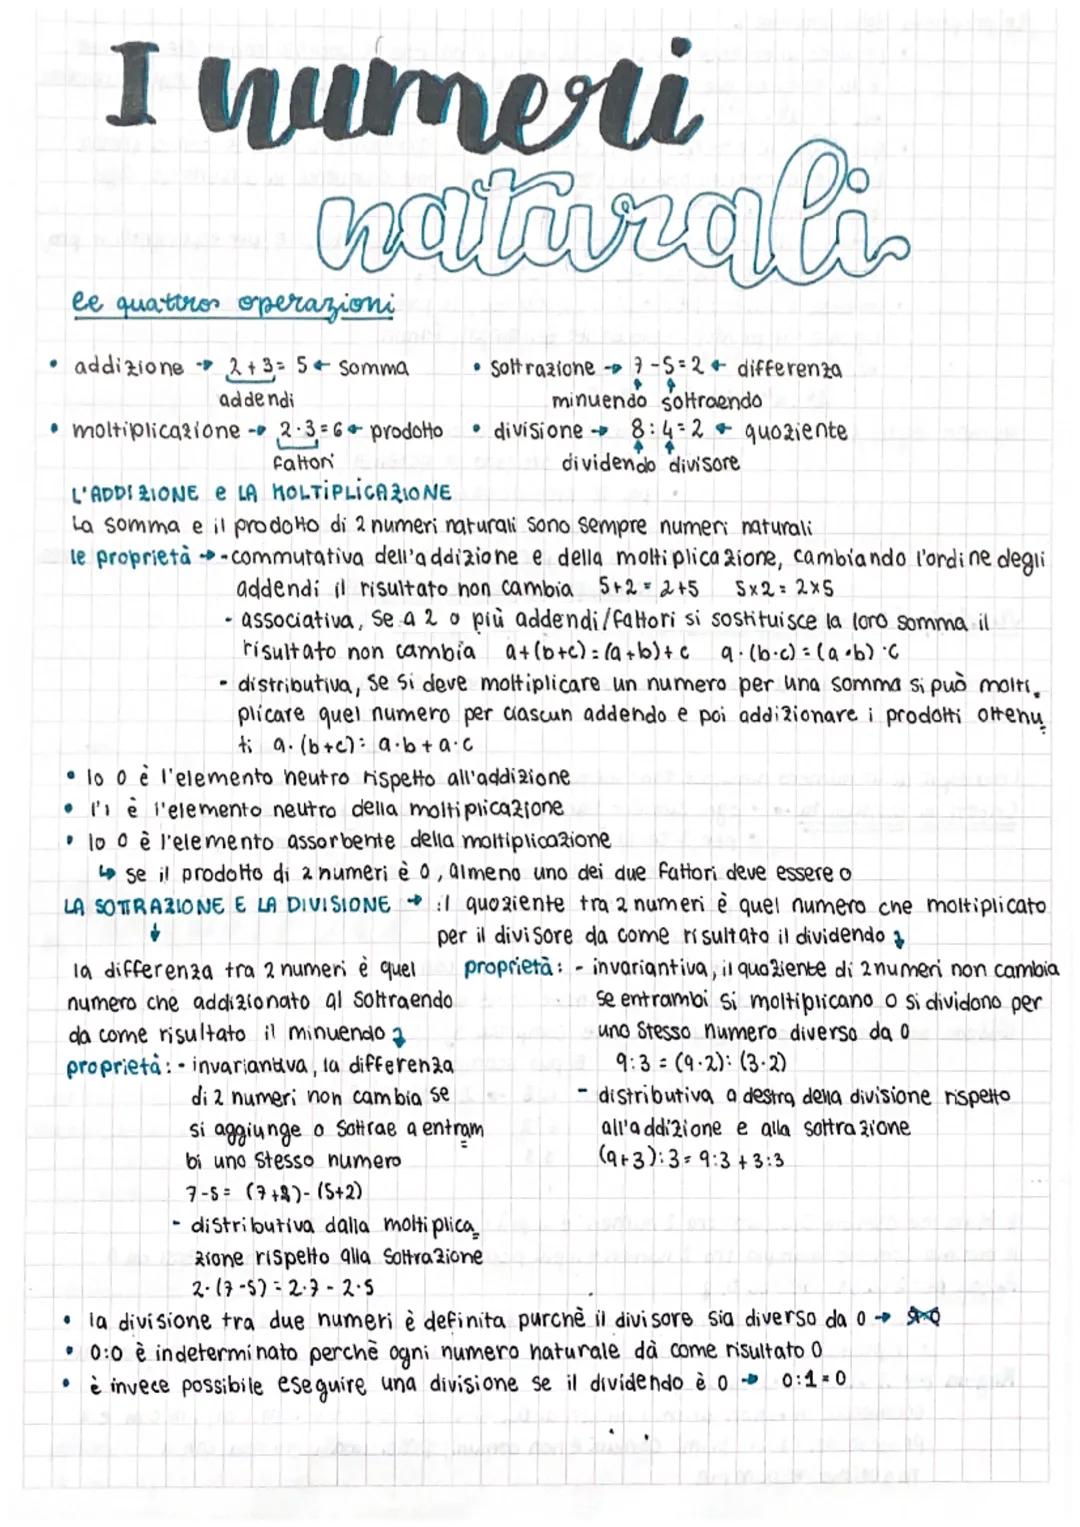 I numeri
naturali
le quattro operazioni
• addizione → 2+3=5 ← somma
addendi
• sottrazione → 7-5=2 ← differenza
minuendo sottraendo
• moltiplicazione → 2·3=6 ← prodotto
fattori
• divisione → 8:4=2 ← quoziente
dividendo divisore
L'ADDIZIONE e LA MOLTIPLICAZIONE
La somma e il prodotto di 2 numeri naturali sono sempre numeri naturali
le proprietà → - commutativa dell'addizione e della moltiplicazione, cambiando l'ordine degli
addendi il risultato non cambia 5+2=2+5 5x2=2x5
- associativa, se a 2 o più addendi/fattori si sostituisce la loro somma il
risultato non cambia a+(b+c)=(a+b)+c a·(b·c)=(a·b)·c
- distributiva, se si deve moltiplicare un numero per una somma si può molti-
plicare quel numero per ciascun addendo e poi addizionare i prodotti ottenu
ti a·(b+c)= a·b+a·c
• lo 0 è l'elemento neutro rispetto all'addizione
• l'1 è l'elemento neutro della moltiplicazione
• lo 0 è l'elemento assorbente della moltiplicazione
↳ se il prodotto di 2 numeri è 0, almeno uno dei due fattori deve essere 0
LA SOTTRAZIONE E LA DIVISIONE → il quoziente tra 2 numeri è quel numero che moltiplicato
per il divisore da come risultato il dividendo
la differenza tra 2 numeri è quel
numero che addizionato al sottraendo
da come risultato il minuendo
proprietà: - invariantiva, la differenza
di 2 numeri non cambia se
si aggiunge o sottrae a entram
bi uno stesso numero
7-5= (7+2)-(5+2)
- distributiva dalla moltiplica
zione rispetto alla sottrazione
2·(7-5)=2·7-2·5
proprietà: - invariantiva, il quoziente di 2 numeri non cambia
se entrambi si moltiplicano o si dividono per
uno stesso numero diverso da 0
9:3=(9·2):(3·2)
- distributiva a destra della divisione rispetto
all'addizione e alla sottrazione
(9+3):3=9:3+3:3
• la divisione tra due numeri è definita purchè il divisore sia diverso da 0 →
• 0:0 è indeterminato perchè ogni numero naturale dà come risultato 0
• è invece possibile eseguire una divisione se il dividendo è 0 → 0:1=0